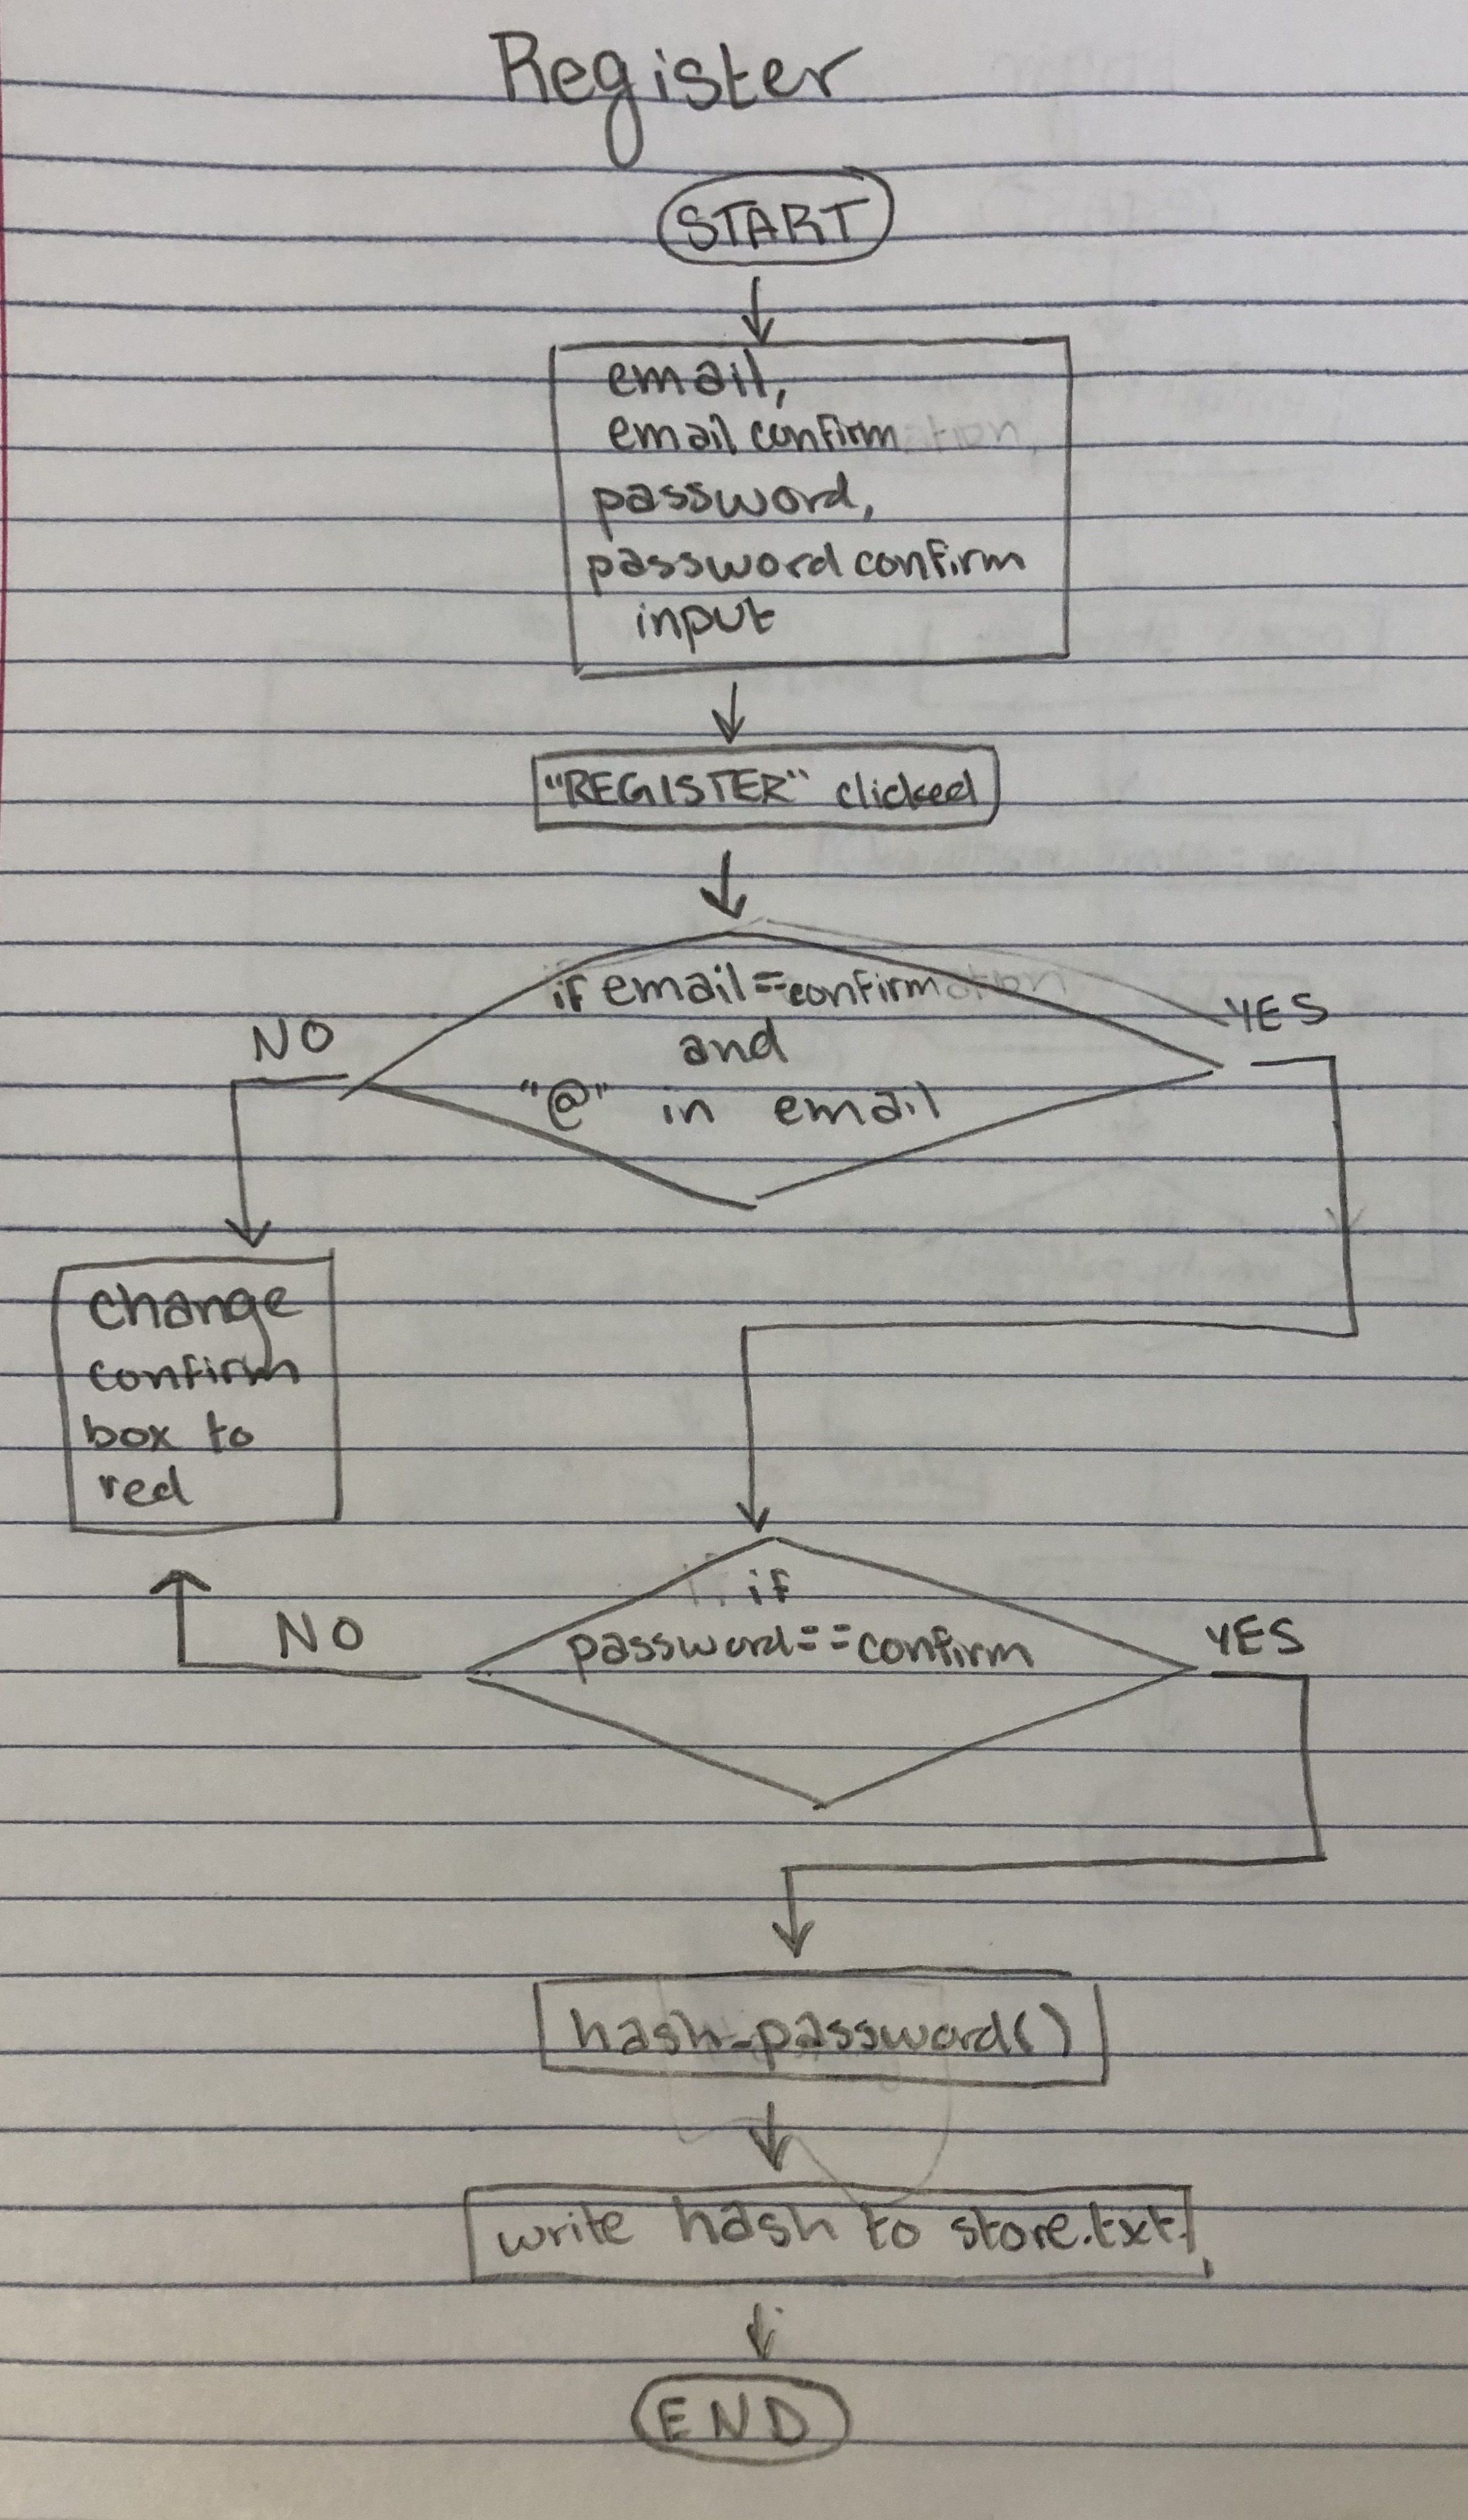 Register
START
email,
email confirm
password,
password confirm
input
"REGISTER" clicked
if email==confirm
and
"@" in email
NO
YES
change
confirm
box to
red
if
password==confirm
NO
YES
hash_password()
write hash to store.txt
END